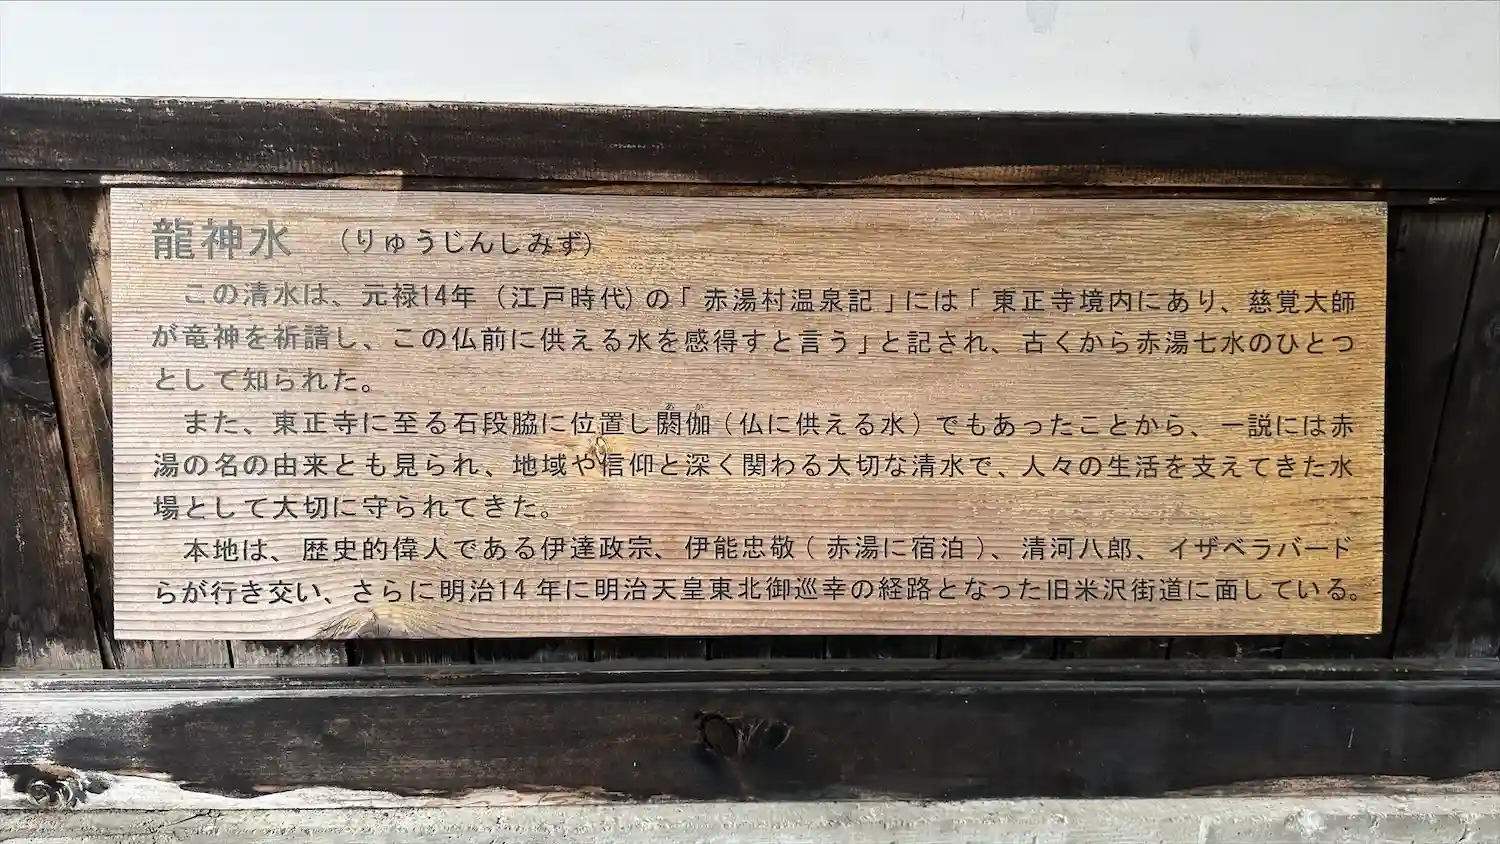 龍神水　（りゅうじんしみず）
この清水は、元禄14年（江戸時代）の「赤湯村温泉記」には「東正寺境内にあり、慈覚大師
が竜神を祈請し、この仏前に供える水を感得すと言う」と記され、古くから赤湯七水のひとつ
として知られた。
あか
また、東正寺に至る石段脇に位置し閼伽（仏に供える水）でもあったことから、一説には赤
湯の名の由来とも見られ、地域や信仰と深く関わる大切な清水で、人々の生活を支えてきた水
場として大切に守られてきた。
本地は、歴史的偉人である伊達政宗、伊能忠敬（赤湯に宿泊）、清河八郎、イザベラバード
らが行き交い、さらに明治14年に明治天皇東北御巡幸の経路となった旧米沢街道に面している。